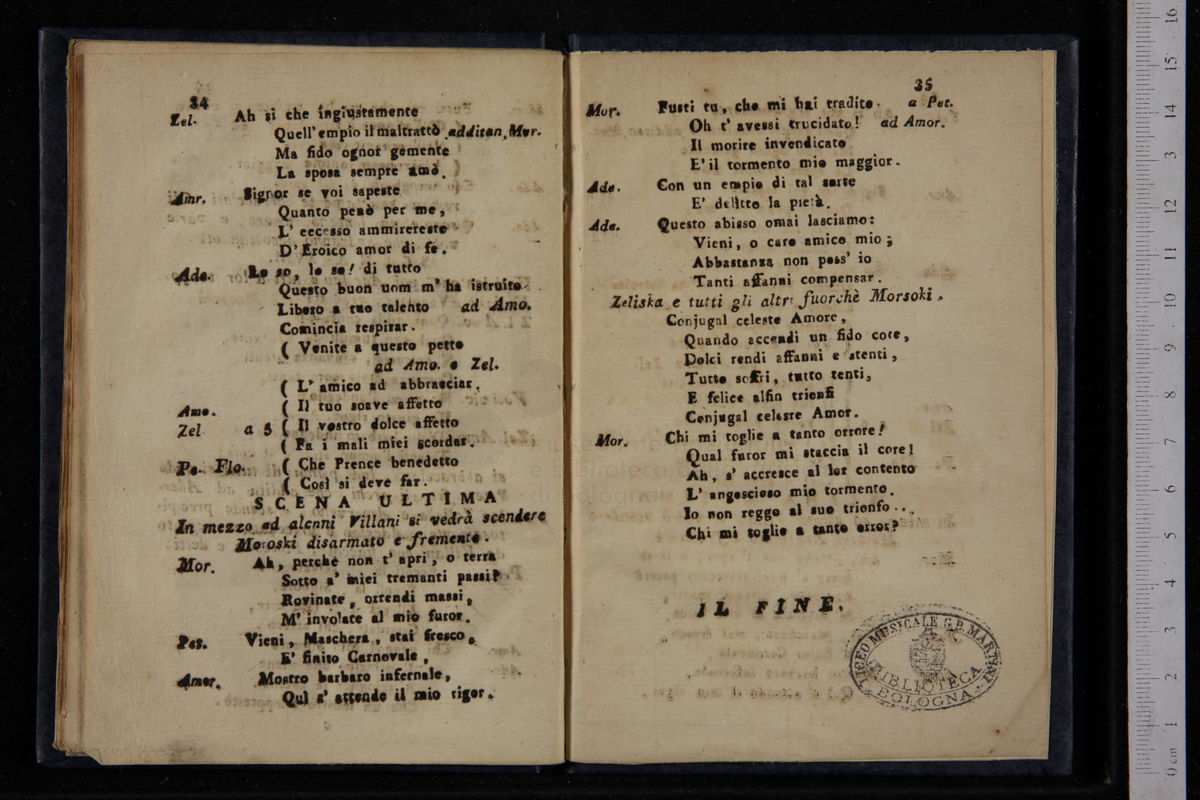 34
Zel. Ah si che ingiustamente
Quell' empio il maltrattò additan, Mor.
Ma fido ognor gemente
La sposa sempre amò.
Amr. Signor se voi sapeste
Quanto penò per me,
L' eccesso ammirereste
D' Eroico amor di fe.
Ado. Lo so, lo so! di tutto
Questo buon uom m' ha istruito
Libero a tuo talento ad Amo.
Comincia respirar.
( Venite a questo petto
ad Amo. e Zel.
( L' amico ad abbracciar.
Amo. ( Il tuo soave affetto
Zel a 5 ( Il vostro dolce affetto
( Fa i mali miei scordar.
Pe. Flo. ( Che Prence benedetto
( Così si deve far.
SCENA ULTIMA
In mezzo ad alcuni Villani si vedrà scendere
Moroski disarmato e fremente.
Mor. Ah, perchè non t' apri, o terra
Sotto a' miei tremanti passi?
Rovinate, orrendi massi,
M' involate al mio furor.
Pet. Vieni, Maschera, stai fresco,
E' finito Carnovale,
Amor. Mostro barbaro infernale,
Quì s' attende il mio rigor.
35
Mor. Fusti tu, che mi hai tradito. a Pet.
Oh t' avessi trucidato! ad Amor.
Il morire invendicato
E' il tormento mio maggior.
Ado. Con un empio di tal sorte
E' delitto la pietà.
Ade. Questo abisso omai lasciamo:
Vieni, o caro amico mio;
Abbastanza non poss' io
Tanti affanni compensar.
Zeliska e tutti gli altri fuorchè Morsoki.
Conjugal celeste Amore,
Quando accendi un fido core,
Dolci rendi affanni e stenti,
Tutto soffri, tutto tenti,
E felice alfin trionfi
Conjugal celesre Amor.
Mor. Chi mi toglie a tanto orrore!
Qual furor mi staccia il core!
Ah, s' accresce al lor contento
L' angoscioso mio tormento.
Io non reggo al suo trionfo...
Chi mi toglie a tanto orror?
IL FINE.
LICEO MUSICALE G.B. MARTINI
BIBLIOTECA
BOLOGNA
0 cm 1 2 3 4 5 6 7 8 9 10 11 12 13 14 15 16